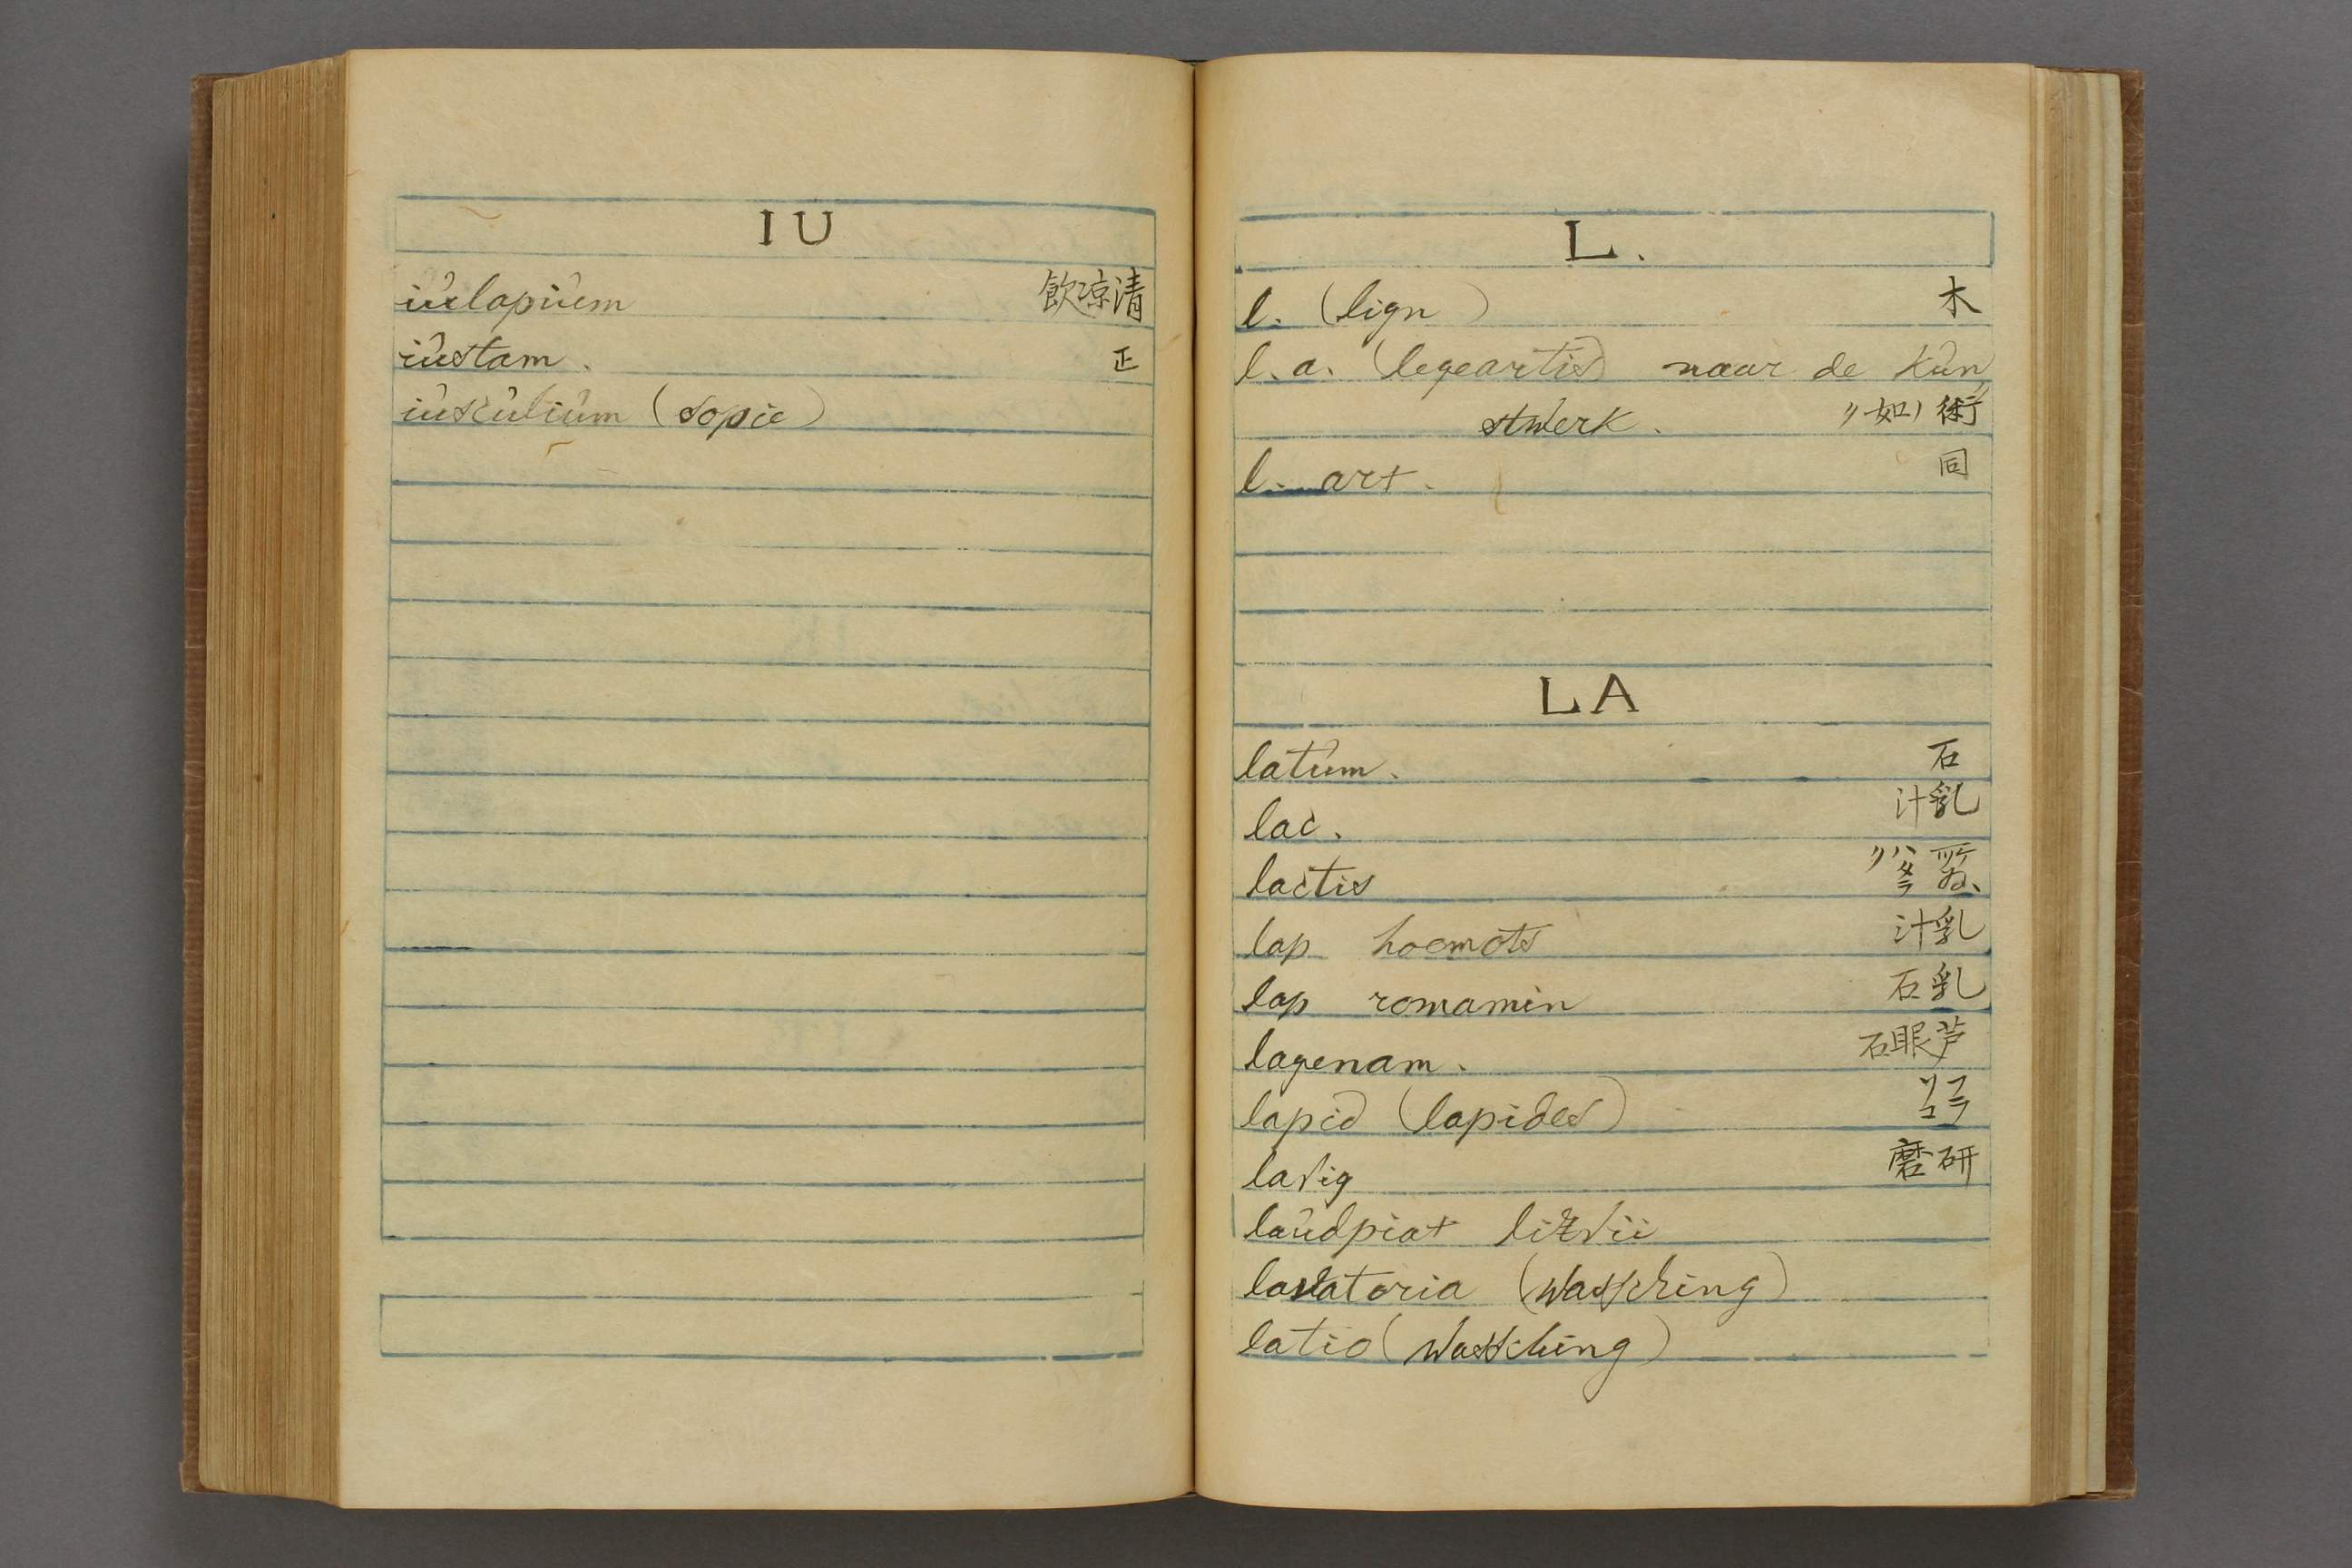 IU
iulapium 飲凉清
iustam. 正
iusculium (sopie)
L.
l. (lign) 木
l. a. (legeartis) naar de Kun
stwerk. 如ノ術
l. art. 同
LA
latum. 石
lac. 汁乳
lactis
lap hoemots 汁乳
lap romamin 石乳
lagenam. 石眼芦
lapid (lapides)
lavig 磨研
laudpiat
lavatoria (wassching)
latio (wassching)